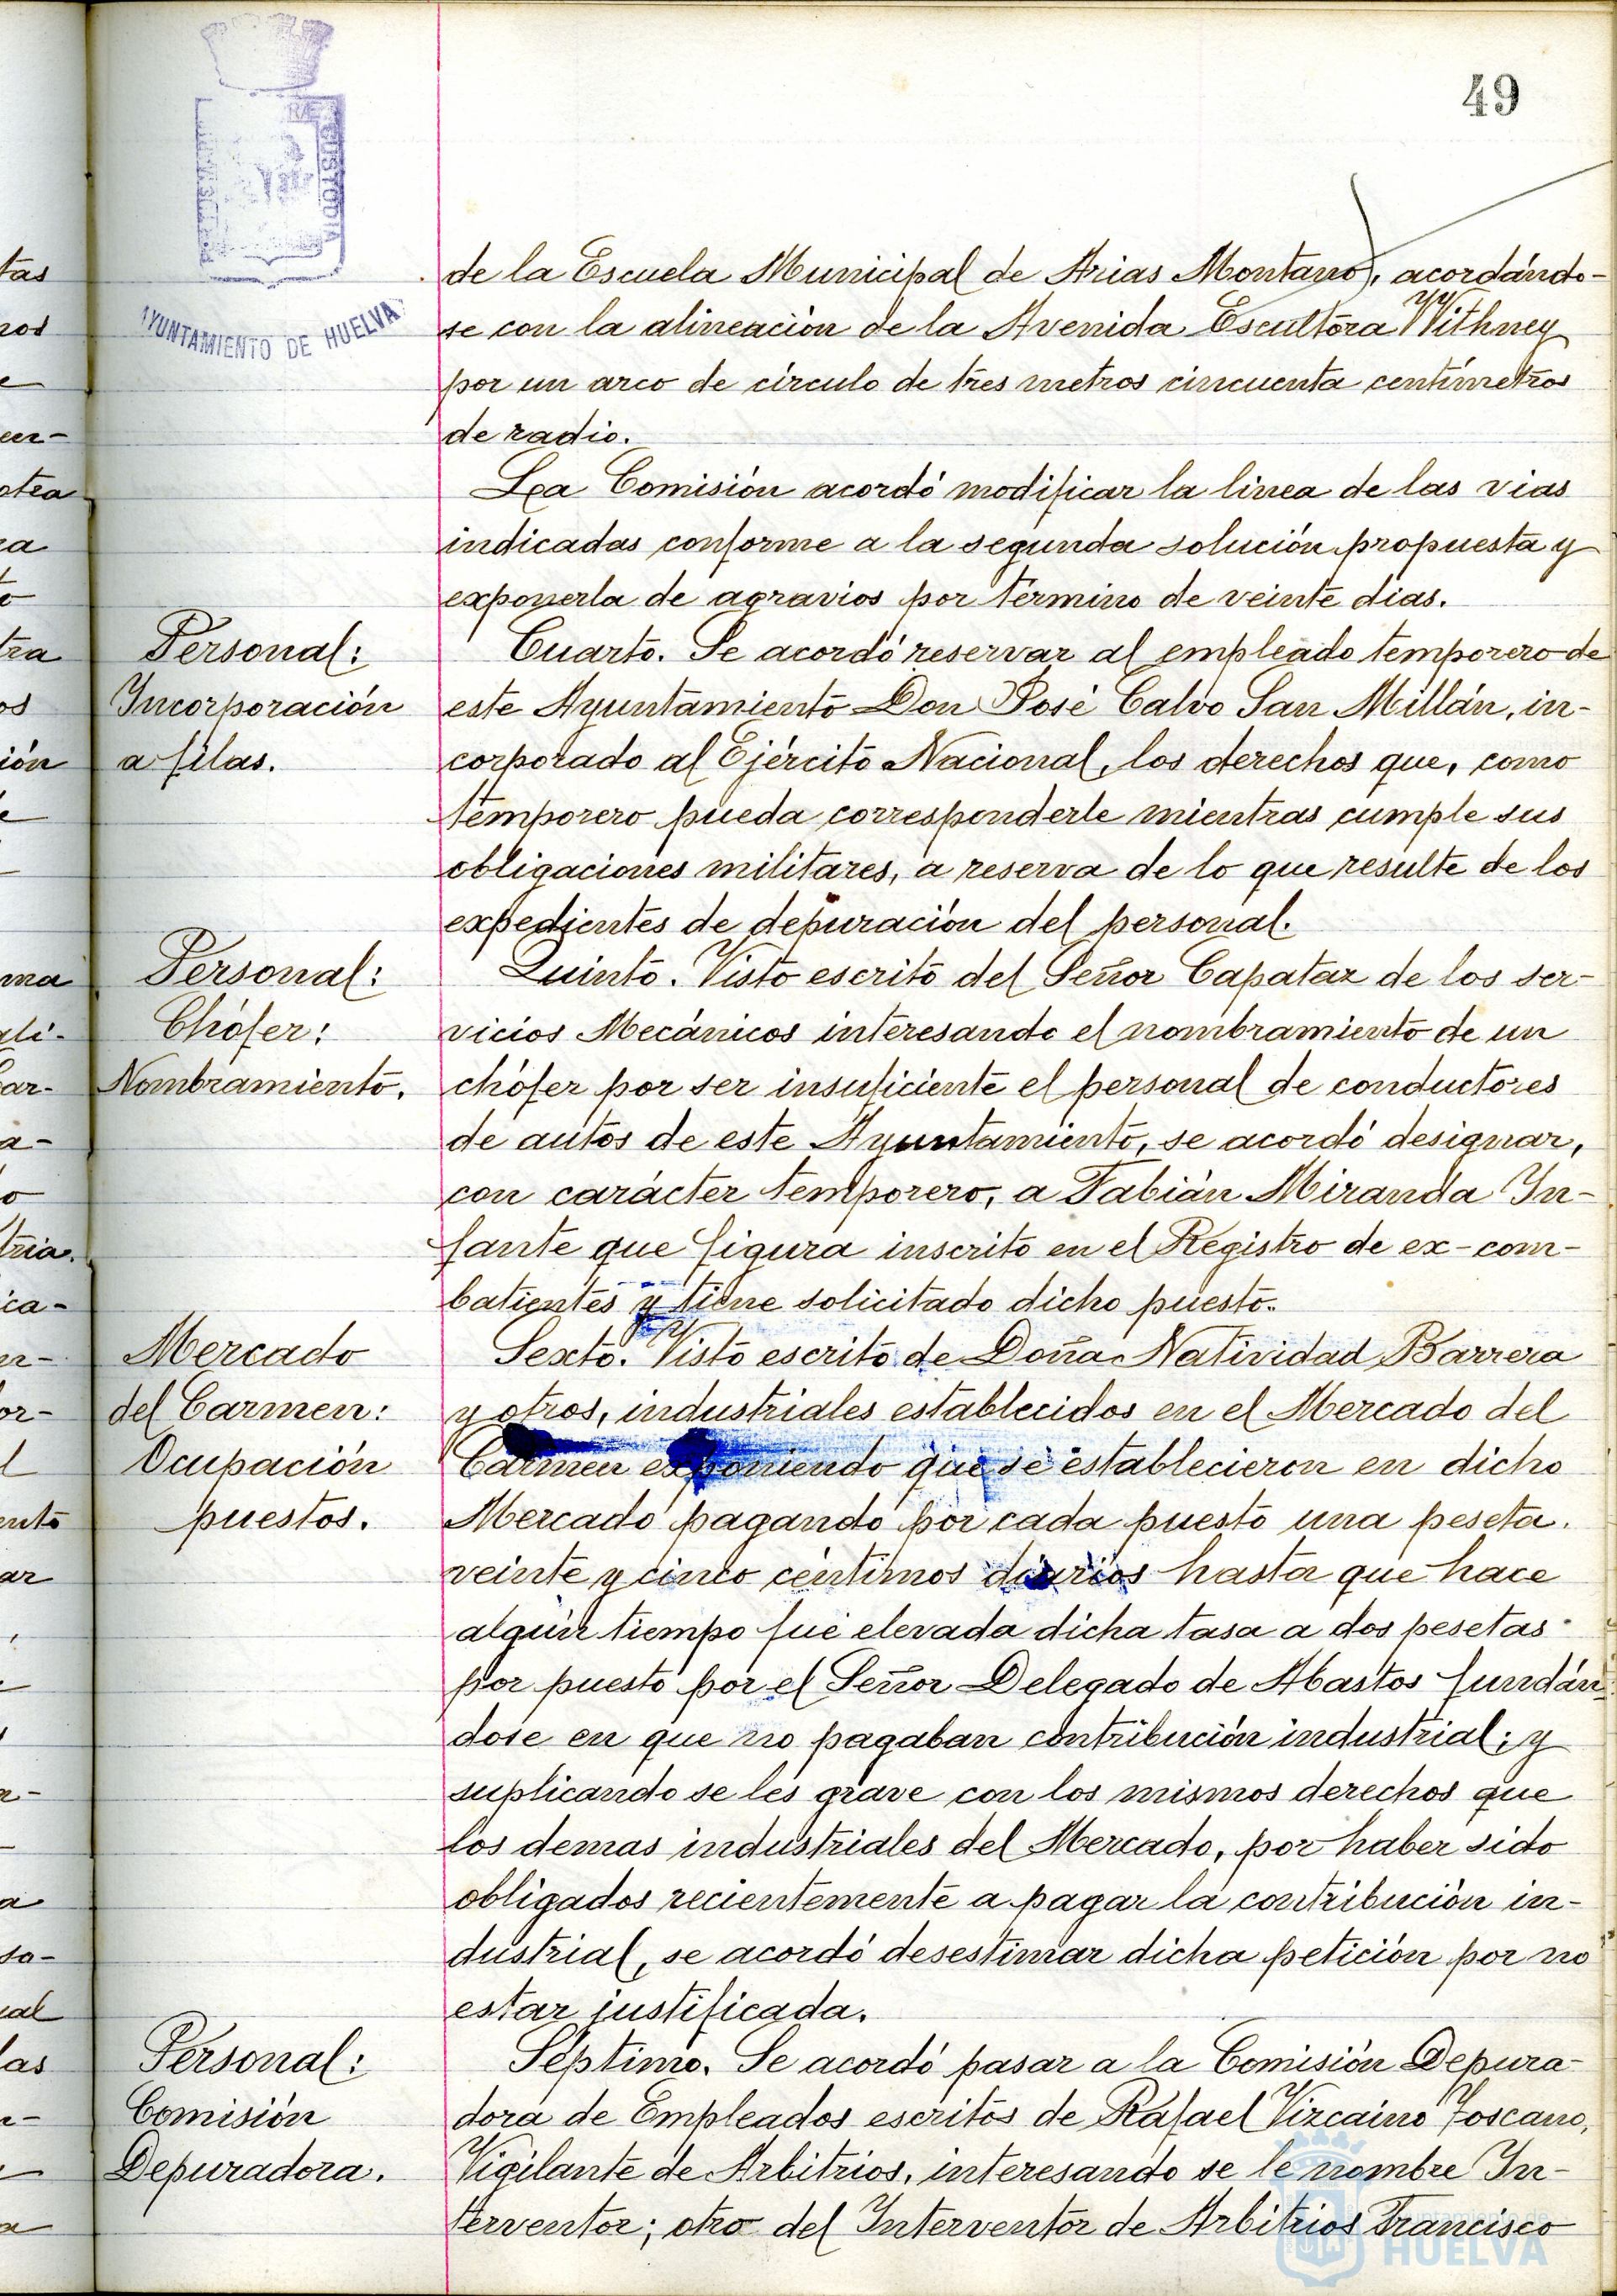 49
AYUNTAMIENTO DE HUELVA
CUSTODIA
de la Escuela Municipal de Arias Montano, acordándo-
se con la alineación de la Avenida Escultora Withney
por un arco de circulo de tres metros cincuenta centímetros
de radio.
La Comisión acordó modificar la linea de las vias
indicadas conforme a la segunda solución propuesta y
exponerla de agravios por término de veinte dias.
Personal:
Incorporación
a filas.
Cuarto. Se acordó reservar al empleado temporero de
este Ayuntamiento Don José Calvo San Millán, in-
corporado al Ejército Nacional, los derechos que, como
temporero pueda corresponderle mientras cumple sus
obligaciones militares, a reserva de lo que resulte de los
expedientes de depuración del personal.
Personal:
Chófer:
Nombramiento.
Quinto. Visto escrito del Señor Capataz de los ser-
vicios Mecánicos interesando el nombramiento de un
chófer por ser insuficiente el personal de conductores
de autos de este Ayuntamiento, se acordó designar,
con carácter temporero, a Fabián Miranda In-
fante que figura inscrito en el Registro de ex-com-
batientes y tiene solicitado dicho puesto.
Mercado
del Carmen:
Ocupación
puestos.
Sexto. Visto escrito de Doña Natividad Barrera
y otros, industriales establecidos en el Mercado del
Carmen exponiendo que se establecieron en dicho
Mercado pagando por cada puesto una peseta.
veinte y cinco céntimos diarios hasta que hace
algún tiempo fué elevada dicha tasa a dos pesetas
por puesto por el Señor Delegado de Abastos fundán-
dose en que no pagaban contribución industrial; y
suplicando se les grave con los mismos derechos que
los demas industriales del Mercado, por haber sido
obligados recientemente a pagar la contribución in-
dustrial, se acordó desestimar dicha petición por no
estar justificada.
Personal:
Comisión
Depuradora.
Séptimo. Se acordó pasar a la Comisión Depura-
dora de Empleados escritos de Rafael Vizcaino Toscano,
Vigilante de Arbitrios, interesando se le nombre In-
terventor; otro del Interventor de Arbitrios Francisco
Ayuntamiento de
HUELVA